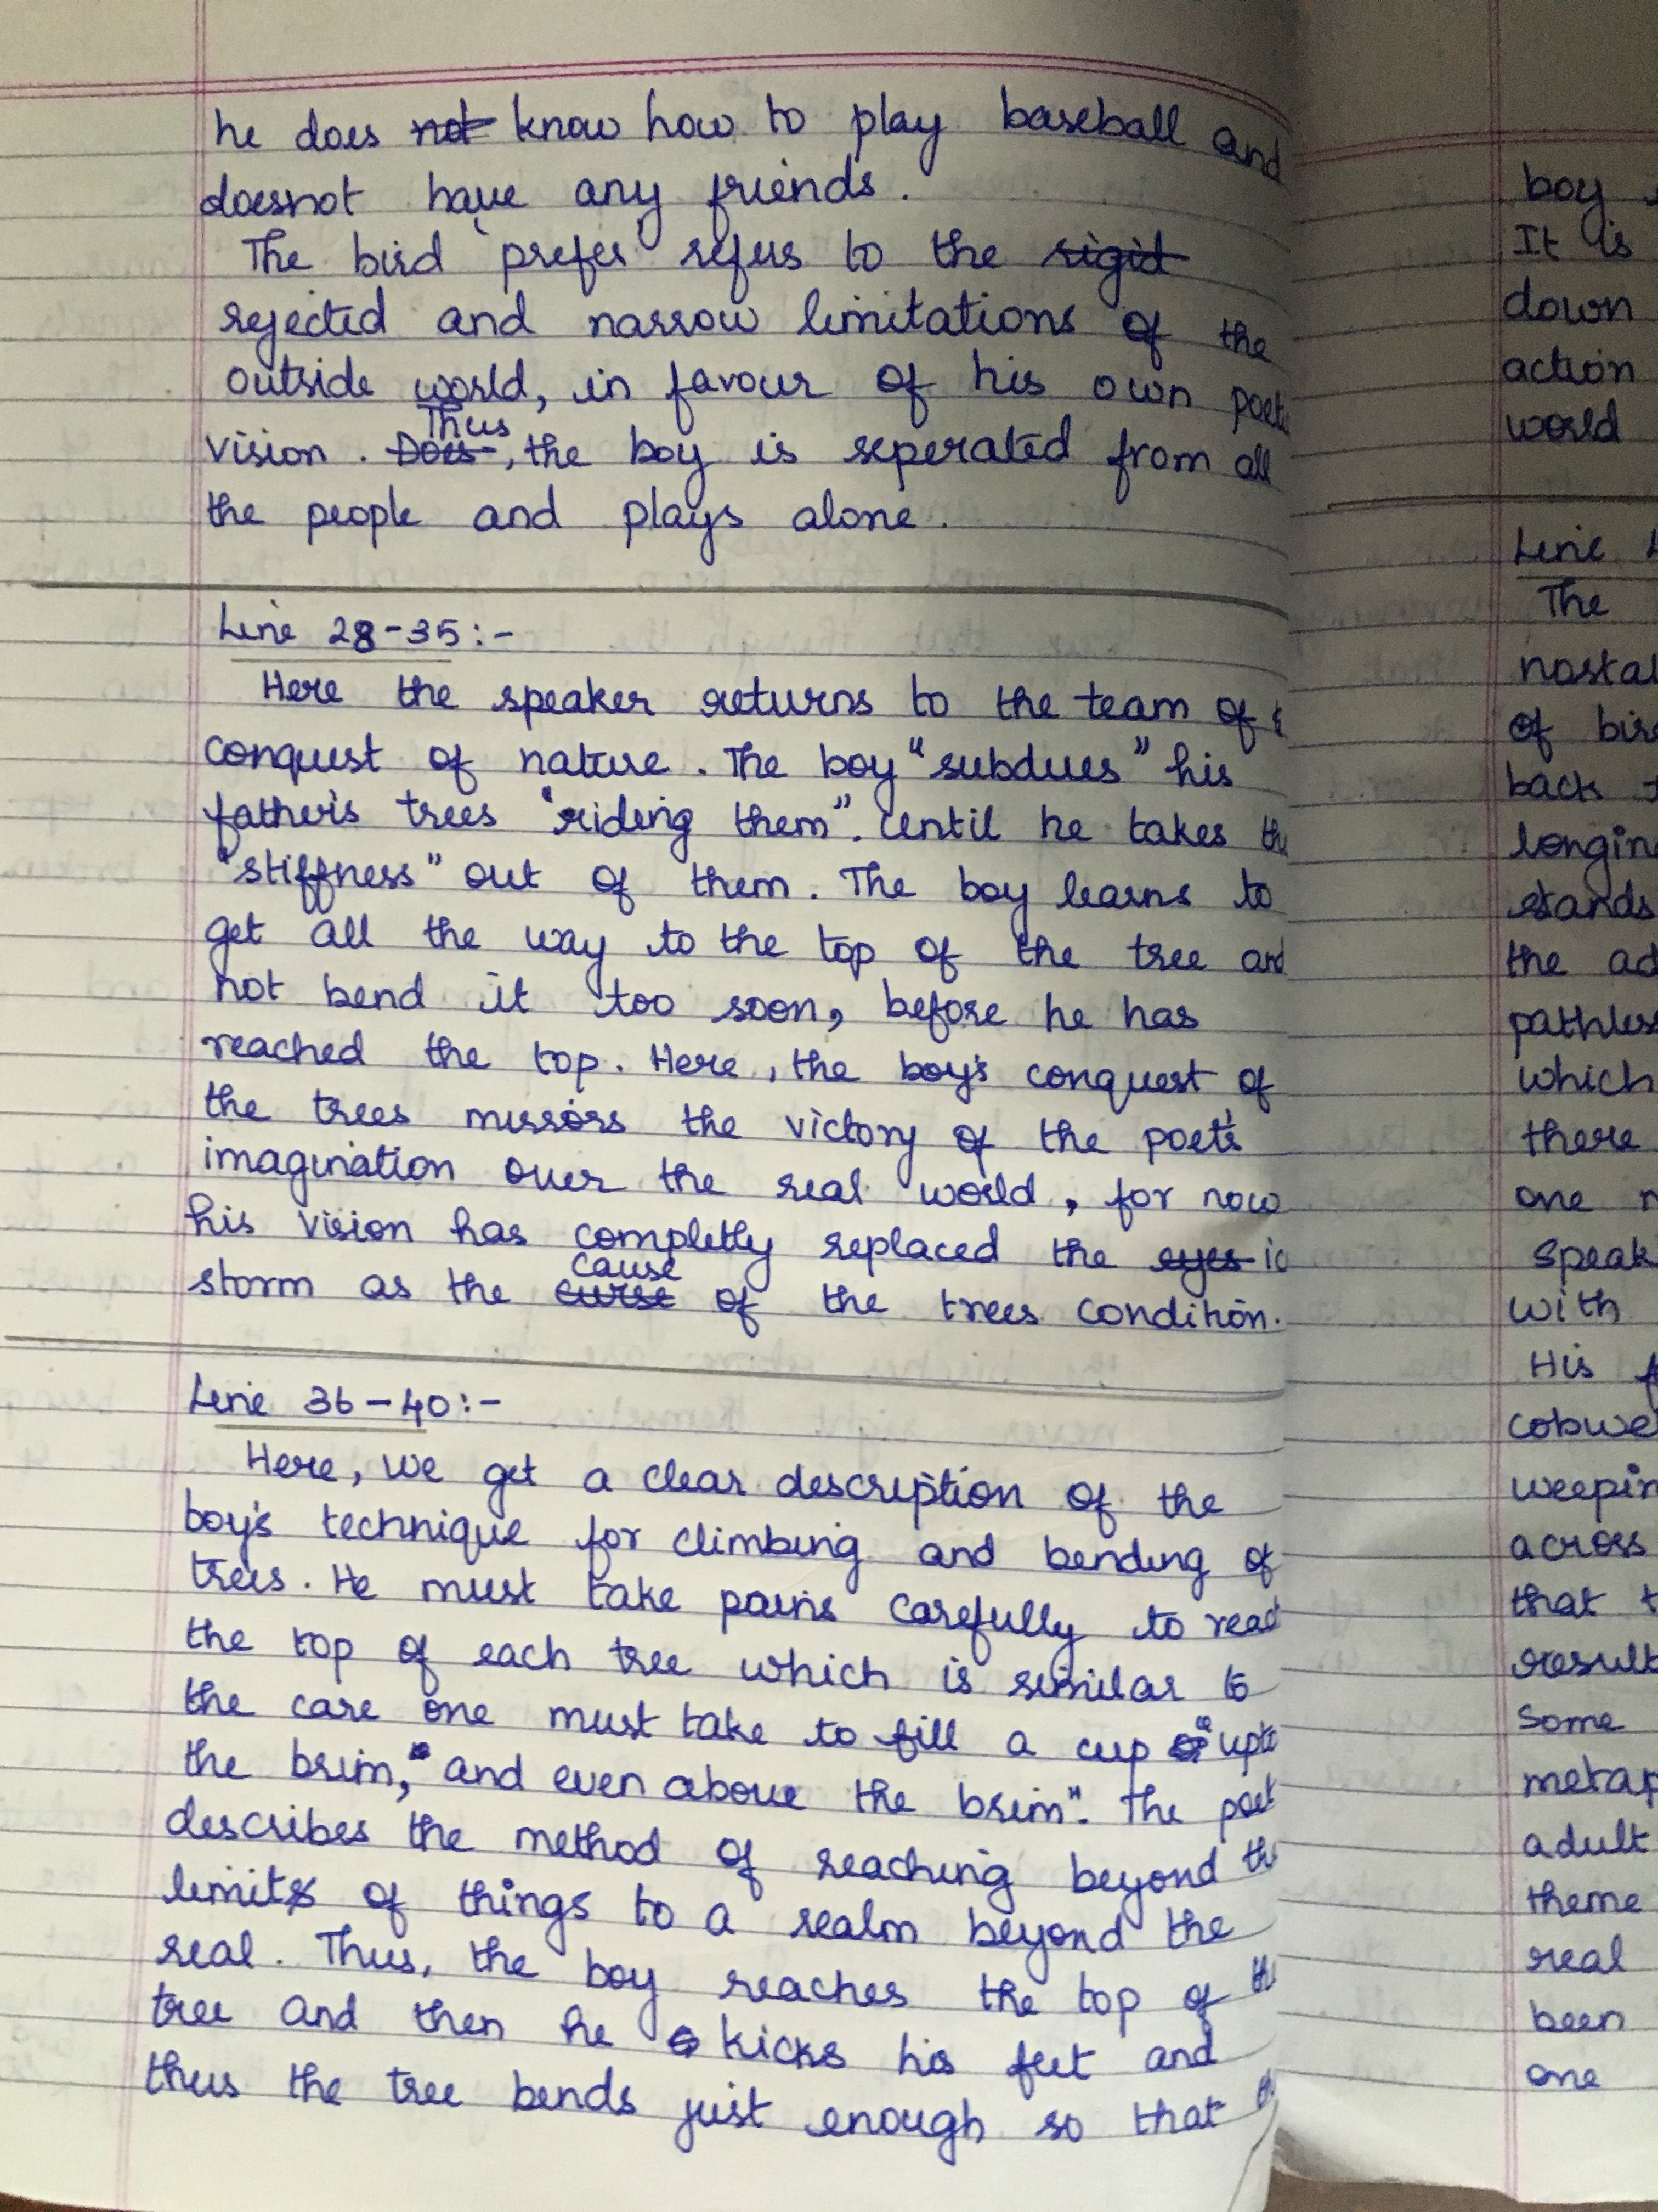 he does not know how to play baseball and
doesnot have any friends.
The bird prefer refers to the rigid
rejected and narrow limitations of the
outside world, in favour of his own
vision. Does Thus, the boy is seperated from all
the people and plays alone.
Line 28-35:-
Here the speaker returns to the team of
conquest of nature. The boy "subdues" his
father's trees "riding them". Until he takes
"stiffness" out of them. The boy learns to
get all the way to the top of the tree and
not bend it too soon, before he has
reached the top. Here, the boy's conquest of
the trees mirrors the victory of the poet's
imagination over the real world, for now
his vision has completly replaced the eyes
storm as the curse cause of the trees condition.
Line 36-40:-
Here, we get a clear description of the
boy's technique for climbing and bending of
trees. He must take pains carefully to
the top of each tree which is similar to
the care one must take to fill a cup
the brim, and even above the brim". The poet
describes the method of reaching beyond
limits of things to a realm beyond the
real. Thus, the boy reaches the top of
tree and then he kicks his feet and
thus the tree bends just enough so that
boy
It is
down
action
world
Line
The
of
back
stands
the
which
there
one
with
His
across
that
result
some
adult
theme
real
been
one